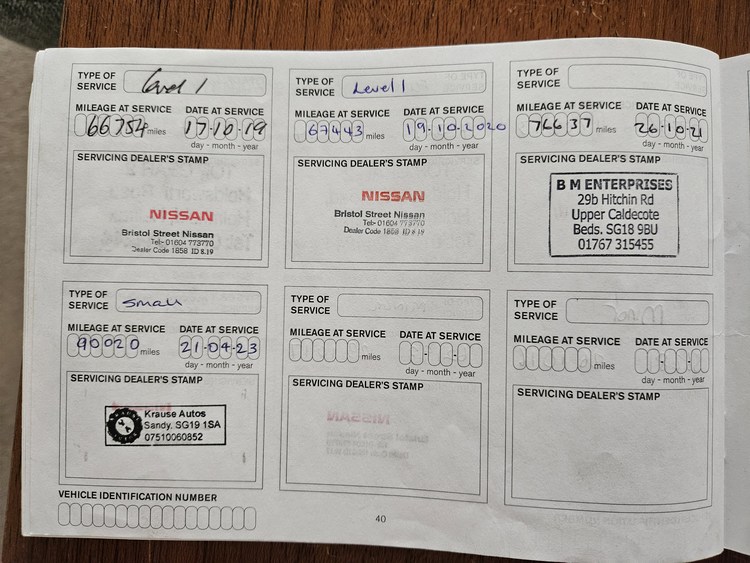 TYPE OF SERVICE Level 1
MILEAGE AT SERVICE DATE AT SERVICE
66754 miles 17-10-19
day - month - year
SERVICING DEALER'S STAMP
NISSAN
Bristol Street Nissan
Tel:- 01604 773770
Dealer Code 1858 ID 8.19
TYPE OF SERVICE Level 1
MILEAGE AT SERVICE DATE AT SERVICE
67443 miles 19-10-2020
day - month - year
SERVICING DEALER'S STAMP
NISSAN
Bristol Street Nissan
Tel:- 01604 773770
Dealer Code 1858 ID 8.19
TYPE OF SERVICE
MILEAGE AT SERVICE DATE AT SERVICE
76637 miles 26-10-21
day - month - year
SERVICING DEALER'S STAMP
B M ENTERPRISES
29b Hitchin Rd
Upper Caldecote
Beds. SG18 9BU
01767 315455
TYPE OF SERVICE small
MILEAGE AT SERVICE DATE AT SERVICE
90020 miles 21-04-23
day - month - year
SERVICING DEALER'S STAMP
Krause Autos
Sandy, SG19 1SA
07510060852
TYPE OF SERVICE
MILEAGE AT SERVICE DATE AT SERVICE
miles
day - month - year
SERVICING DEALER'S STAMP
TYPE OF SERVICE
MILEAGE AT SERVICE DATE AT SERVICE
miles
day - month - year
SERVICING DEALER'S STAMP
VEHICLE IDENTIFICATION NUMBER
40